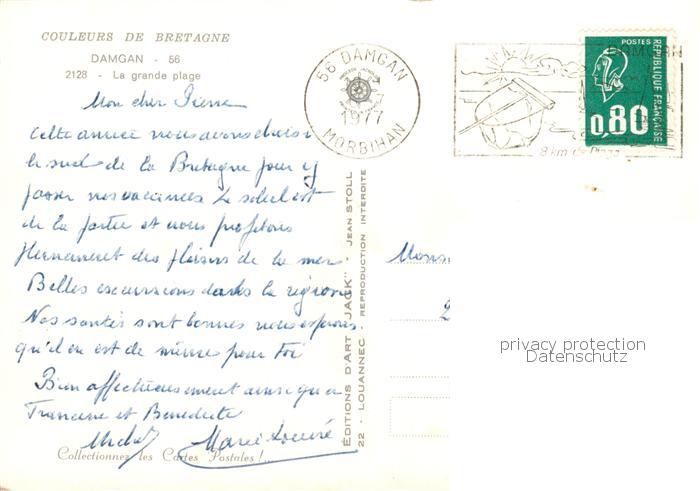 COULEURS DE BRETAGNE
DAMGAN - 56
2128 - La grande plage
Mon cher Pierre
Cette année nous avons choisi
le sud de la Bretagne pour y
passer nos vacances. Le soleil est
de la partie et nous profitons
pleinement des plaisirs de la mer
Belles excursions dans la région
Nos santés sont bonnes nous espérons
qu'il en est de même pour toi
Bien affectueusement ainsi qu'a
Francine et Benedicte
Michel Marie Louise
Collectionnez les Cartes Postales !..
ÉDITIONS D'ART "JACK" JEAN STOLL
22 - LOUANNEC REPRODUCTION INTERDITE
56 DAMGAN
1977
MORBIHAN
DAMGAN
8 km de Plage
POSTES
RÉPUBLIQUE FRANÇAISE
0,80
Monsi
2
privacy protection
Datenschutz